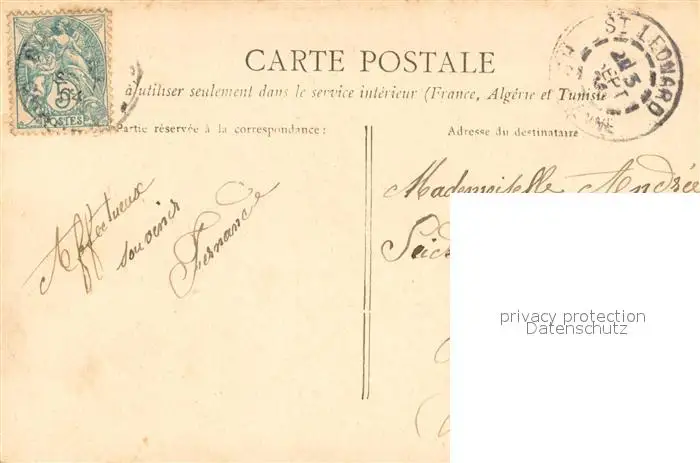 CARTE POSTALE
à utiliser seulement dans le service intérieur (France, Algérie et Tunisie
Partie réservée à la correspondance:
Adresse du destinataire
Affectueux
souvenir
Fernande
Mademoiselle Andrée
5c
POSTES
ST LEONARD
privacy protection
Datenschutz